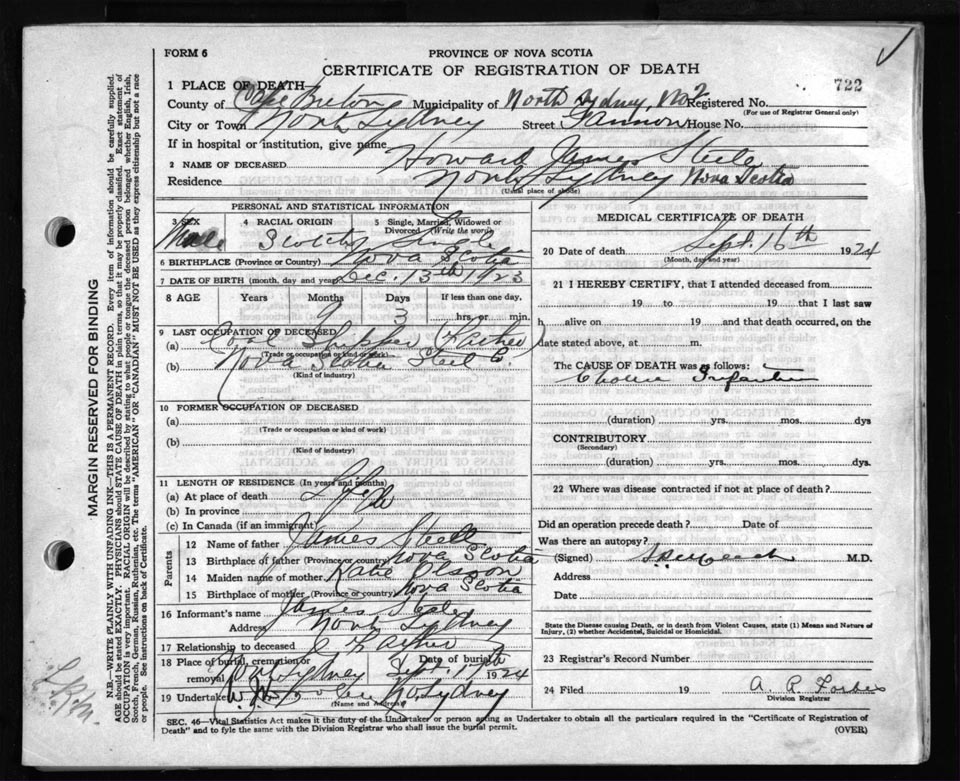 FORM 6
PROVINCE OF NOVA SCOTIA
CERTIFICATE OF REGISTRATION OF DEATH
722
1 PLACE OF DEATH
County of Cape Breton Municipality of North Sydney, No 2 Registered No.
(For use of Registrar General only)
City or Town North Sydney Street Fannon House No.
If in hospital or institution, give name
2 NAME OF DECEASED Howard James Steele
Residence North Sydney Nova Scotia
(Usual place of abode)
PERSONAL AND STATISTICAL INFORMATION
3 SEX Male
4 RACIAL ORIGIN Scotch
5 Single, Married, Widowed or Divorced (Write the word) Single
6 BIRTHPLACE (Province or Country) Nova Scotia
7 DATE OF BIRTH (month, day and year) Dec. 13th 1923
8 AGE Years Months Days If less than one day.
9 3 hrs. or min.
9 LAST OCCUPATION OF DECEASED
(a) Coal Shipper (Father)
(Trade or occupation or kind of work)
(b) Nova Scotia Steel Co.
(Kind of industry)
10 FORMER OCCUPATION OF DECEASED
(a)
(Trade or occupation or kind of work)
(b)
(Kind of industry)
11 LENGTH OF RESIDENCE (In years and months)
(a) At place of death Life
(b) In province
(c) In Canada (if an immigrant)
Parents
12 Name of father James Steele
13 Birthplace of father (Province or country) Nova Scotia
14 Maiden name of mother Katie
15 Birthplace of mother (Province or country) Nova Scotia
16 Informant's name James Steele
Address North Sydney
17 Relationship to deceased Father
18 Place of burial, cremation or removal No. Sydney Date of burial Sept. 17th 1924
19 Undertaker No. Sydney
(Name and Address)
MEDICAL CERTIFICATE OF DEATH
20 Date of death Sept. 16th 1924
(Month, day and year)
21 I HEREBY CERTIFY, that I attended deceased from
19 to 19 that I last saw
h alive on 19 and that death occurred, on
date stated above, at m.
The CAUSE OF DEATH was as follows:
Cholera Infantum
(duration) yrs. mos. dys
CONTRIBUTORY
(Secondary)
(duration) yrs. mos. dys.
22 Where was disease contracted if not at place of death?
Did an operation precede death? Date of
Was there an autopsy?
(Signed) M.D.
Address
Date
State the Disease causing Death, or in death from Violent Causes, state (1) Means and Nature of
Injury, (2) whether Accidental, Suicidal or Homicidal.
23 Registrar's Record Number
24 Filed 19 A. R. Forbes
Division Registrar
SEC. 46—Vital Statistics Act makes it the duty of the Undertaker or person acting as Undertaker to obtain all the particulars required in the "Certificate of Registration of
Death" and to fyle the same with the Division Registrar who shall issue the burial permit. (OVER)
MARGIN RESERVED FOR BINDING
N.B.—WRITE PLAINLY WITH UNFADING INK—THIS IS A PERMANENT RECORD. Every item of information should be carefully supplied.
AGE should be stated EXACTLY. PHYSICIANS should STATE CAUSE OF DEATH in plain terms, so that it may be properly classified. Exact statement of
OCCUPATION is very important. RACIAL ORIGIN will be described by stating to what people or tongue the deceased person belonged whether English, Irish,
Scotch, French, German, Russian, Ruthenian, etc. The terms "AMERICAN" or "CANADIAN" MUST NOT BE USED as they express citizenship but not a race
or people. See instructions on back of Certificate.